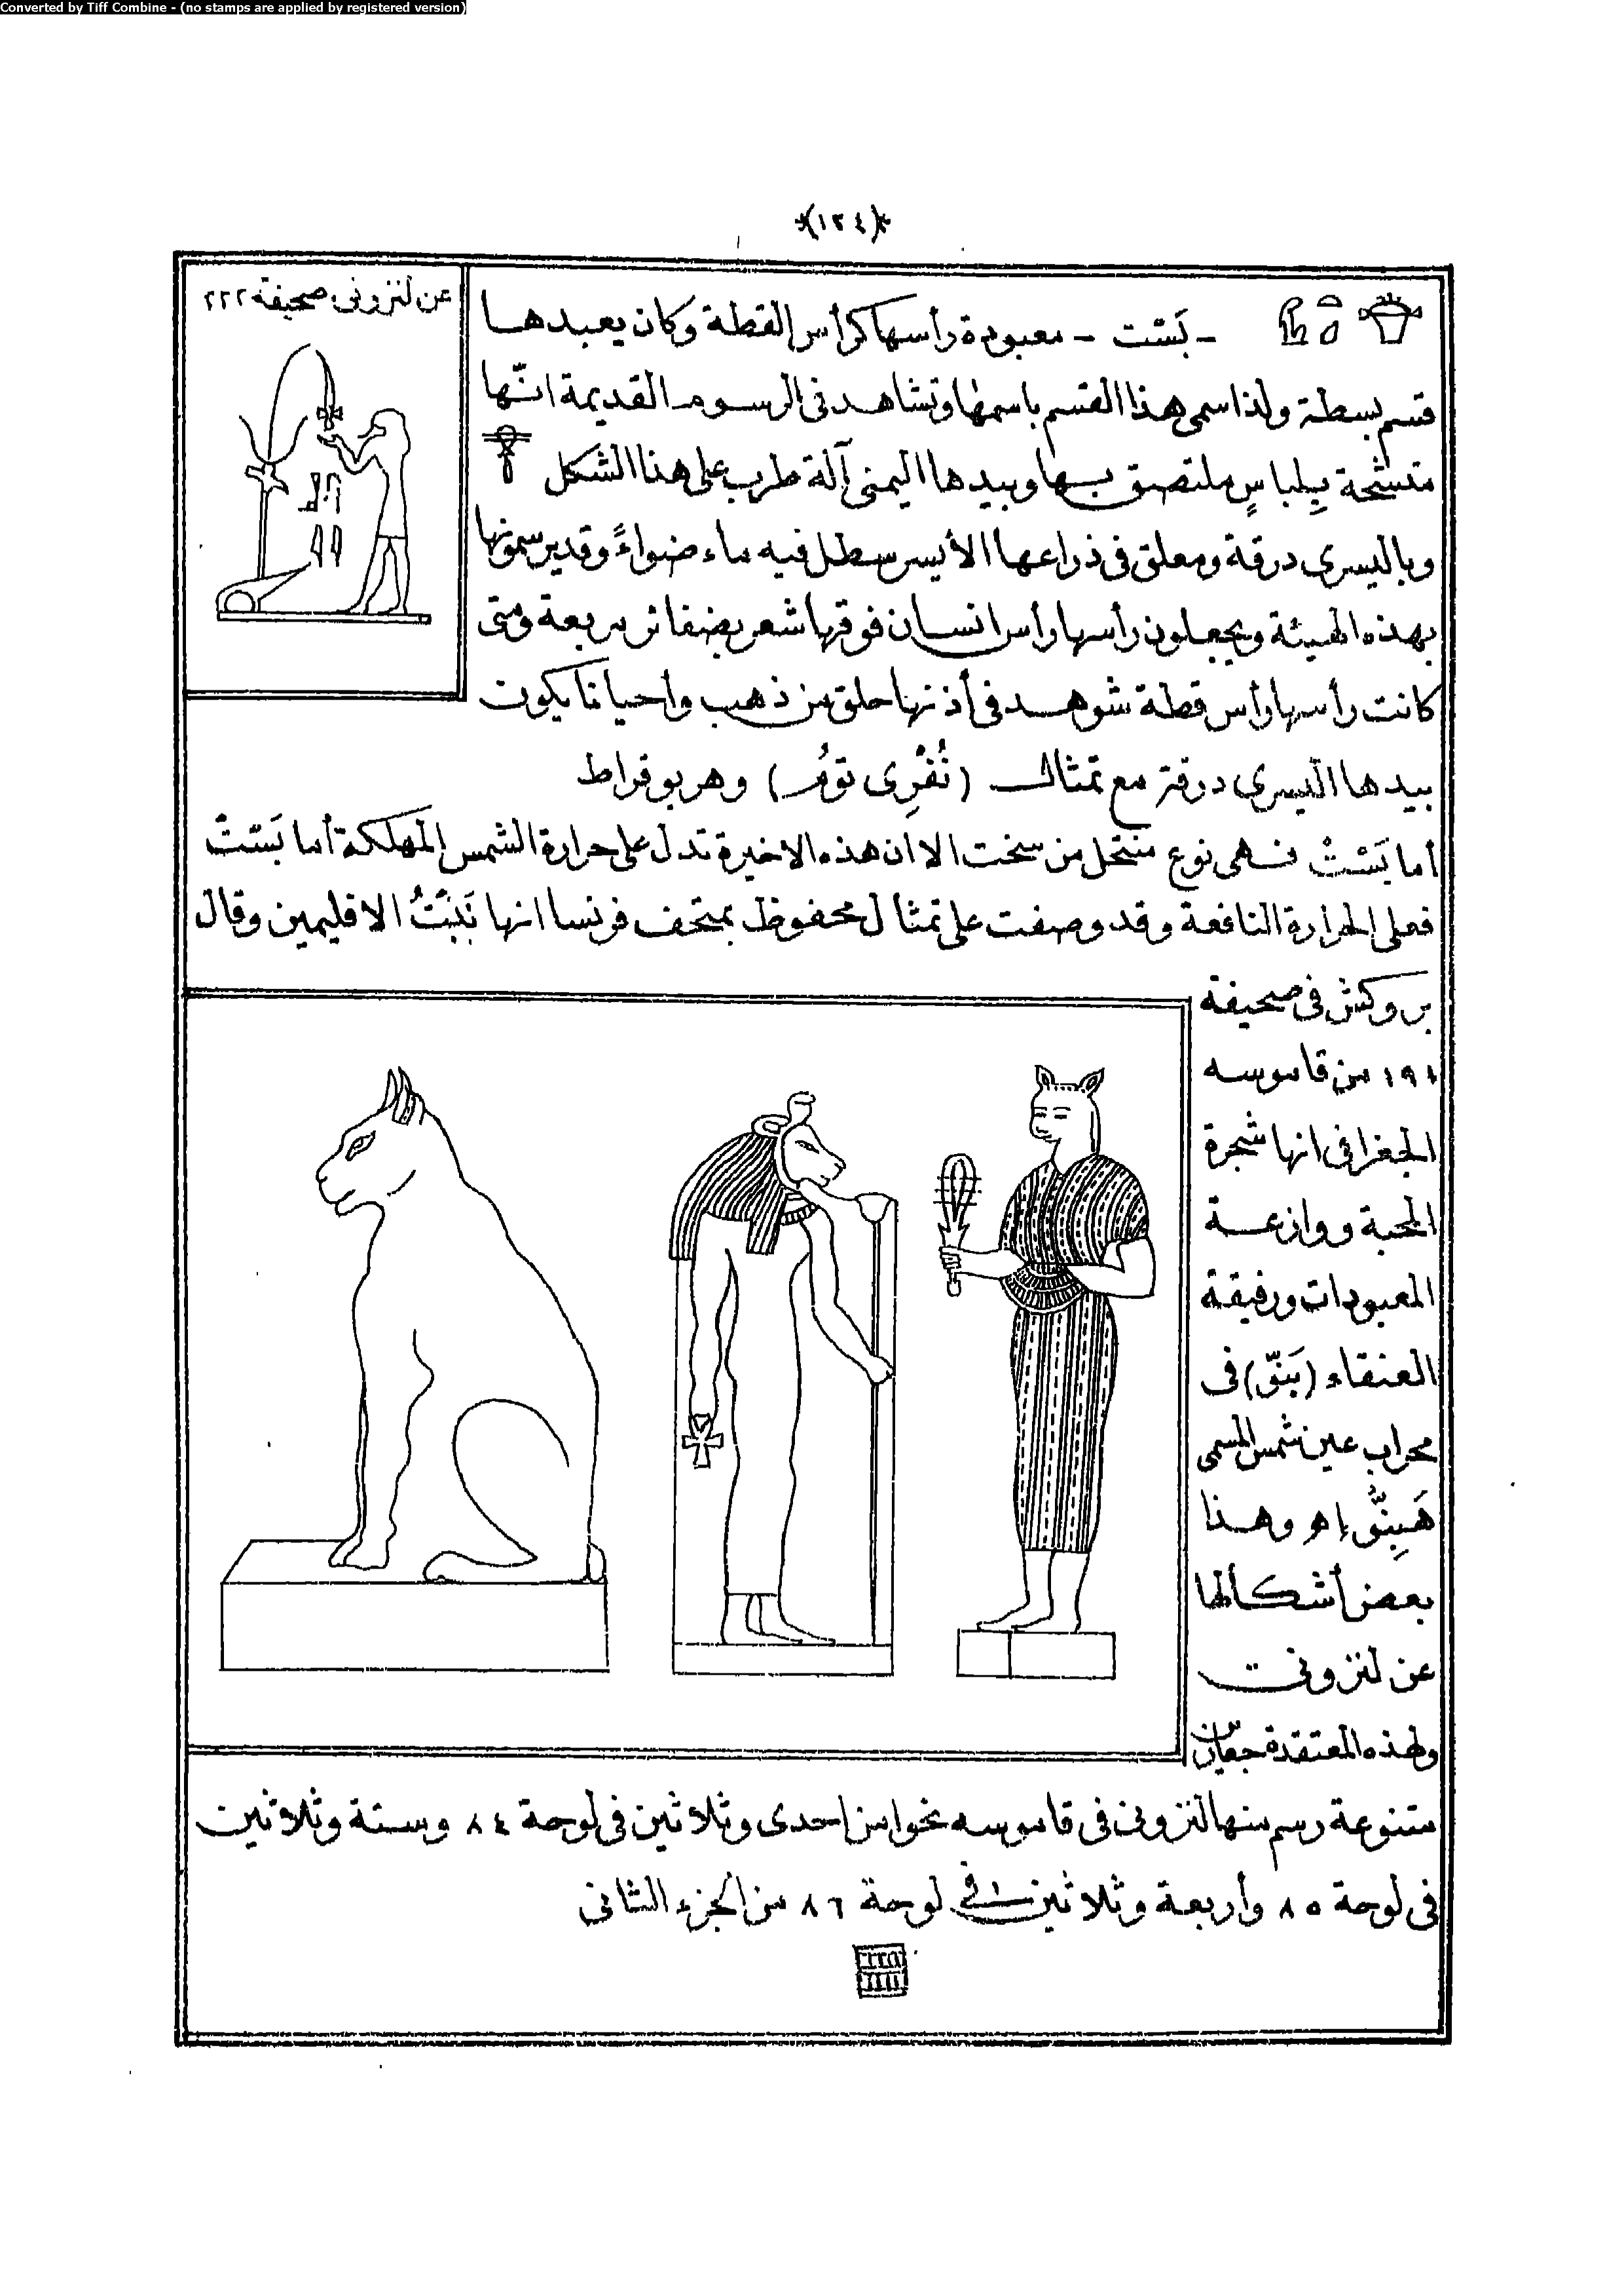 Converted by Tiff Combine - (no stamps are applied by registered version)
*(١٢٤)*
عن لنزونى صحيفة ٢٢٢
- بَسْت - معبودة رأسها كرأس القطة وكان يعبدها
قسم بسطة ولذا سمى هذا القسم باسمها وتشاهد فى الرسوم القديمة انّها
متشحة بِلباسٍ ملتصق بها وبيدها اليمنى آلة طرب على هذا الشكل
وباليسرى درقة ومعلق فى ذراعها الأيسر سطل فيه ماء وقد يرسمونها
بهذه الهيئة ويجعلون رأسها رأس انسان فوقها شعر بضفائر مربعة ومتى
كانت رأسها رأس قطة شوهد فى أذنها حلق من ذهب وأحيانا يكون
بيدها اليسرى درقة مع تمثال (نُفْرِى تومُ) وهربوقراط
أما بَسْتْ فهى نوع منتحل من سخت الا ان هذه الاخيرة تدل على حرارة الشمس المهلكة أما بَسْتْ
فعلى الحرارة النافعة وقد وصفت على تمثال محفوظ بمتحف فرنسا انها الاقليمين وقال
بروكش فى صحيفة
١٩١ من قاموسه
الجغرافى انها شجرة
المحبة ووازعة
المعبودات ورفيقة
العنقاء (بَنّو) فى
محراب عين شمس المسمى
وهذا
بعض أشكالها
عن لنزونى
ولهذه المعتقدة
متنوعة رسم منها لنزونى فى قاموسه نحوا من احدى وثلاثين فى لوحة ٨٤ وستة وثلاثين
فى لوحة ٨٥ وأربعة وثلاثين فى لوحة ٨٦ من الجزء الثانى